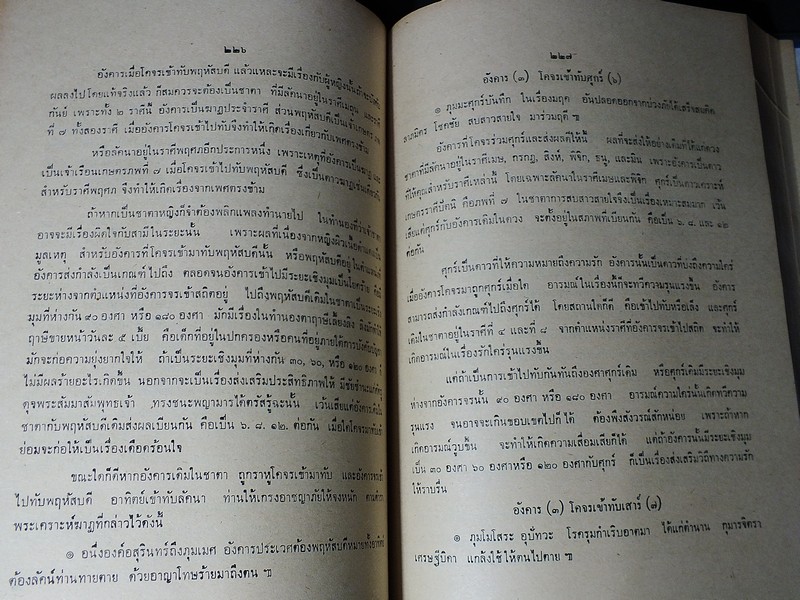 ๒๒๖
อังคารเมื่อโคจรเข้าทับพฤหัสบดี แล้วแหละจะมีเรื่องกับผู้หญิงนั้น
ผลลงไปโดยแท้จริงแล้ว ก็สมควรจะต้องเป็นชาตา ที่มีลัคนาอยู่ในราศีเมถุน
กันย์ เพราะทั้ง ๒ ราศีนี้ อังคารเป็นฆาฏประจำราศี ส่วนพฤหัสบดีเป็นเจ้าเกษตร
ที่ ๗ ทั้งสองราศี เมื่ออังคารโคจรเข้าไปทับจึงทำให้เกิดเรื่องเกี่ยวกับเพศตรงข้าม
หรือลัคนาอยู่ในราศีพฤศภอีกประการหนึ่ง เพราะเหตุที่อังคารเป็นฆาฏ และ
เป็นเจ้าเรือนเกษตรภพที่ ๗ เมื่อโคจรเข้าไปทับพฤหัสบดี ซึ่งเป็นดาวฆาฏเช่นเดียวกัน
สำหรับราศีพฤศภ จึงทำให้เกิดเรื่องจากเพศตรงข้าม
ถ้าหากเป็นชาตาหญิงก็จำต้องพลิกแพลงทำนายไป ในทำนองที่ว่าเจ้าชาตา
อาจจะมีเรื่องผิดใจกับสามีในระยะนั้น เพราะผลที่เนื่องจากหญิงผิวเนื้อดำแดงเป็น
มูลเหตุ สำหรับอังคารที่โคจรเข้ามาทับพฤหัสบดีนั้น หรือพฤหัสบดีอยู่ในตำแหน่งที่
อังคารส่งกำลังเป็นเกณฑ์ไปถึง ตลอดจนอังคารเข้าไปมีระยะเชิงมุมเป็นโยคร้าย คือมี
ระยะห่างจากตำแหน่งที่อังคารจรเข้าสถิตอยู่ ไปถึงพฤหัสบดีเดิมในชาตาเป็นระยะเชิง
มุมที่ห่างกัน ๙๐ องศา หรือ ๑๘๐ องศา มักมีเรื่องในทำนองตาฤาษีเลี้ยงลิง
ฤาษีขายหน้าวันละ ๕ เบี้ย คือเด็กที่อยู่ในปกครองหรือคนที่อยู่ภายใต้การบังคับบัญชา
มักจะก่อความยุ่งยากใจให้ ถ้าเป็นระยะเชิงมุมที่ห่างกัน ๓๐, ๖๐, หรือ ๑๒๐ องศา ก็
ไม่มีผลร้ายอะไรเกิดขึ้น นอกจากจะเป็นเรื่องส่งเสริมประสิทธิภาพให้ มีชัยชำนะแก่ศัตรู
ดุจพระสัมมาสัมพุทธเจ้า ทรงชนะพญามารได้ตรัสรู้ฉะนั้น เว้นเสียแต่อังคารเดิมใน
ชาตากับพฤหัสบดีเดิมส่งผลเบียนกัน คือเป็น ๖. ๘. ๑๒. ต่อกัน เมื่อใดโคจรมาทับเข้า
ย่อมจะก่อให้เป็นเรื่องเดือดร้อนใจ
ขณะใดก็ดีหากอังคารเดิมในชาตา ถูกราหูโคจรเข้ามาทับ และอังคารจรเข้า
ไปทับพฤหัสบดี อาทิตย์เข้าทับลัคนา ท่านให้เกรงอาชญาภัยให้จงหนัก ตามตำรา
พระเคราะห์ฆาฏที่กล่าวไว้ดังนี้
๑ อนึ่งองค์อสุรินทร์ถึงภุมเมศ อังคารประเวศต้องพฤหัสบดีหมายทั้งอาทิตย์
ต้องลัคน์ท่านทายตาย ด้วยอาญาโทษร้ายมาถึงตน ฯ
๒๒๗
อังคาร (๓) โคจรเข้าทับศุกร์ (๖)
๑ ภุมมะศุกร์บันทึก ในเรื่องมฤค อันปลอดออกจากบ่วงภัยได้เสร็จสมคิด
ลาภมิตร โชคชัย สบสาวสายใจ มาร่วมฤดี ฯ
อังคารที่โคจรร่วมศุกร์และส่งผลดีให้นี้ ผลที่จะส่งให้อย่างเต็มที่ได้แก่ดวง
ชาตาที่มีลัคนาอยู่ในราศีเมษ, กรกฎ, สิงห์, พิจิก, ธนู, และมีน เพราะอังคารเป็นดาว
ที่ให้คุณสำหรับราศีเหล่านี้ โดยเฉพาะลัคนาในราศีเมษและพิจิก ศุกร์เป็นดาวเคราะห์
เกษตรราศีปัตนิ คือภพที่ ๗ ในชาตาการสบสาวสายใจจึงเป็นเรื่องเหมาะสมมาก เว้น
เสียแต่ศุกร์กับอังคารเดิมในดวง จะตั้งอยู่ในสภาพที่เบียนกัน คือเป็น ๖. ๘. และ ๑๒
ต่อกัน
ศุกร์เป็นดาวที่ให้ความหมายถึงความรัก อังคารนั้นเป็นดาวที่บ่งถึงความใคร่
เมื่ออังคารโคจรมาถูกศุกร์เมื่อใด อารมณ์ในเรื่องนี้ก็จะทวีความรุนแรงขึ้น อังคาร
สามารถส่งกำลังเกณฑ์ไปถึงศุกร์ได้ โดยสถานใดก็ดี คือเข้าไปทับหรือเล็ง และศุกร์
เดิมในชาตาอยู่ในราศีที่ ๔ และที่ ๘ จากตำแหน่งราศีที่อังคารจรเข้าไปสถิต จะทำให้
เกิดอารมณ์ในเรื่องรักใคร่รุนแรงขึ้น
แต่ถ้าเป็นการเข้าไปทับกันทันถึงองศาศุกร์เดิม หรือศุกร์เดิมมีระยะเชิงมุม
ห่างจากอังคารจรนั้น ๙๐ องศา หรือ ๑๘๐ องศา อารมณ์ความใคร่นั้นเกิดทวีความ
รุนแรง จนอาจจะเกินขอบเขตไปก็ได้ ต้องพึงสังวรณ์สักหน่อย เพราะถ้าหาก
เกิดอารมณ์วูบขึ้น จะทำให้เกิดความเสื่อมเสียก็ได้ แต่ถ้าอังคารนั้นมีระยะเชิงมุม
เป็น ๓๐ องศา ๖๐ องศาหรือ ๑๒๐ องศากับศุกร์ ก็เป็นเรื่องส่งเสริมวิถีทางความรัก
ให้ราบรื่น
อังคาร (๓) โคจรเข้าทับเสาร์ (๗)
๑ ภุมโมโสระ อุบัทวะ โรครุมกำเริบอาตมา ได้แก่ตำนาน กุมารจิตรา
เศรษฐีบิดา แกล้งใช้ให้ตนไปตาย ฯ